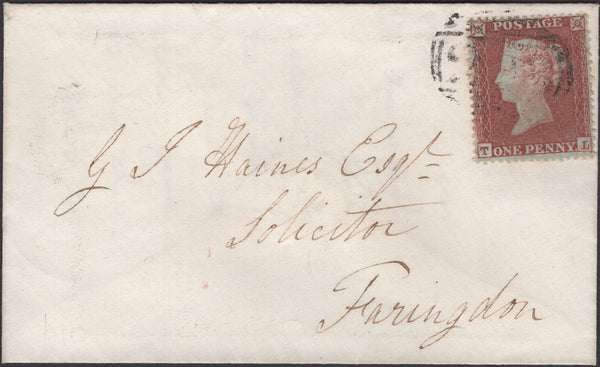 POSTAGE
T ONE PENNY L
G J Haines Esqr
Solicitor
Faringdon